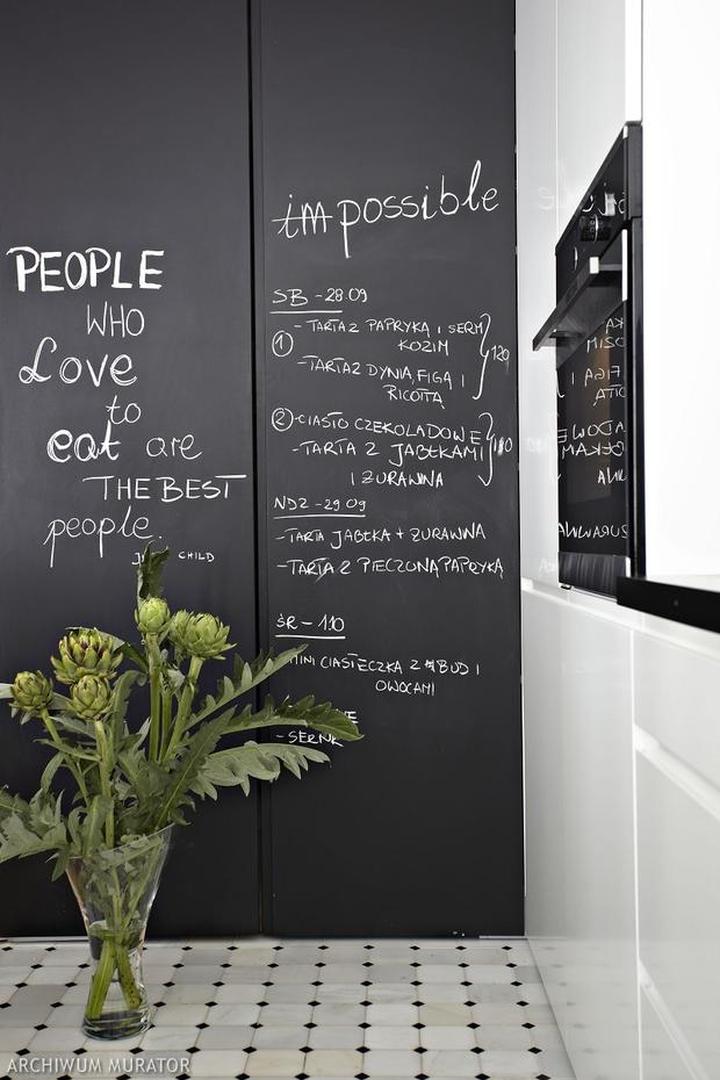 PEOPLE
WHO
Love
to
eat are
THE BEST
people.
CHILD
impossible
SB - 28.09
① - TARTA Z PAPRYKĄ I SEREM
KOZIM
- TARTA Z DYNIĄ, FIGĄ I
RICOTTĄ
120
② - CIASTO CZEKOLADOWE
- TARTA Z JABŁKAMI
I ŻURAWINĄ
NDZ - 29.09
- TARTA JABŁKA + ŻURAWINA
- TARTA Z PIECZONĄ PAPRYKĄ
ŚR - 1.10
MINI CIASTECZKA Z BUDI
OWOCAMI
- SERNIK
ARCHIWUM MURATOR